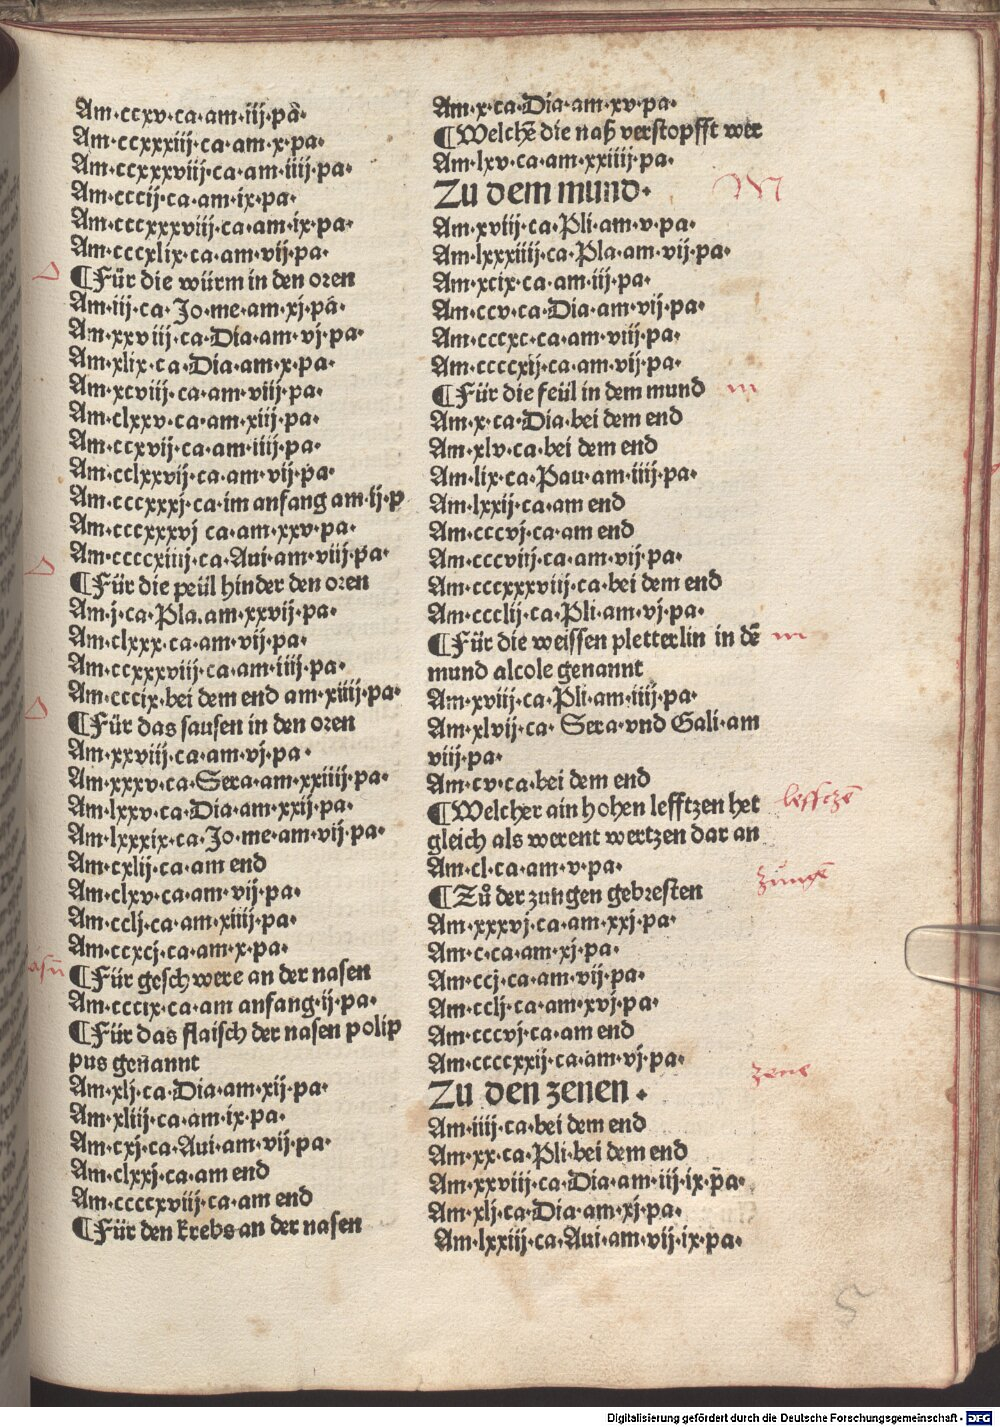 Am·ccxv·ca·am·iij·pā·
Am·ccxxxiij·ca·am·x·pa·
Am·ccxxxviij·ca·am·iiij·pa·
Am·cccij·ca·am·ix·pa·
Am·cccxxxviij·ca·am·ix·pa·
Am·cccxlix·ca·am·vij·pa·
¶Für die würm in den oren
Am·iij·ca·Jo·me·am·xj·pa·
Am·xxviij·ca·Dia·am·vj·pa·
Am·xlix·ca·Dia·am·x·pa·
Am·xcviij·ca·am·viij·pa·
Am·clxxv·ca·am·xiij·pa·
Am·ccxvij·ca·am·iiij·pa·
Am·cclxxvij·ca·am·vij·pa·
Am·cccxxxj·ca·im anfang am·ij·p
Am·cccxxxvj ca·am·xxv·pa·
Am·ccccxiiij·ca·Aui·am·viij·pa·
¶Für die peül hinder den oren
Am·j·ca·Pla·am·xxvij·pa·
Am·clxxx·ca·am·vij·pa·
Am·ccxxxviij·ca·am·iiij·pa·
Am·cccix·bei dem end am·xiiij·pa·
¶Für das sausen in den oren
Am·xxviij·ca·am·vj·pa·
Am·xxxv·ca·Sera·am·xxiiij·pa·
Am·lxxv·ca·Dia·am·xxij·pa·
Am·lxxxix·ca·Jo·me·am·vij·pa·
Am·cxlij·ca·am end
Am·clxv·ca·am·vij·pa·
Am·cclj·ca·am·xiiij·pa·
Am·ccxcj·ca·am·x·pa·
asñ
¶Für geschwere an der nasen
Am·cccix·ca·am anfang·ij·pa·
¶Für das flaisch der nasen polip
pus geñannt
Am·xlj·ca·Dia·am·xij·pa·
Am·xliij·ca·am·ix·pa·
Am·cxj·ca·Aui·am·vij·pa·
Am·clxxj·ca·am end
Am·ccccxviij·ca·am end
¶Für den krebs an der nasen
Am·x·ca·Dia·am·xv·pa·
¶Welchē die naß verstopfft wer
Am·lxv·ca·am·xxiiij·pa·
Zu dem mund·
M
Am·xviij·ca·Pli·am·v·pa·
Am·lxxxiiij·ca·Pla·am·vij·pa·
Am·xcix·ca·am·iij·pa·
Am·ccv·ca·Dia·am·vij·pa·
Am·cccxc·ca·am·viij·pa·
Am·ccccxij·ca·am·vij·pa·
¶Für die feül in dem mund
m
Am·x·ca·Dia·bei dem end
Am·xlv·ca·bei dem end
Am·lix·ca·Pau·am·iiij·pa·
Am·lxxij·ca·am end
Am·cccvj·ca·am end
Am·cccviij·ca·am·vij·pa·
Am·cccxxxviij·ca·bei dem end
Am·ccclij·ca·Pli·am·vj·pa·
¶Für die weissen pletterlin in dē
m
mund alcole genannt
Am·xviij·ca·Pli·am·iiij·pa·
Am·xlvij·ca· Sera·vnd Gali·am
viij·pa·
Am·cv·ca·bei dem end
¶Welcher ain hohen lefftzen het
leffczē
gleich als werent wertzen dar an
Am·cl·ca·am·v·pa·
¶Zů der zungen gebresten
zungē
Am·xxxvj·ca·am·xxj·pa·
Am·c·ca·am·xj·pa·
Am·ccj·ca·am·vij·pa·
Am·cclj·ca·am·xvj·pa·
Am·cccvj·ca·am end
Am·ccccxxij·ca·am·vj·pa·
Zu den zenen ·
zene
Am·iiij·ca·bei dem end
Am·xx·ca·Pli·bei dem end
Am·xxviij·ca·Dia·am·iij·ix·pa·
Am·xlj·ca·Dia·am·xj·pa·
Am·lxxiij·ca·Aui·am·vij·ix·pa·
5
Digitalisierung gefördert durch die Deutsche Forschungsgemeinschaft - DFG